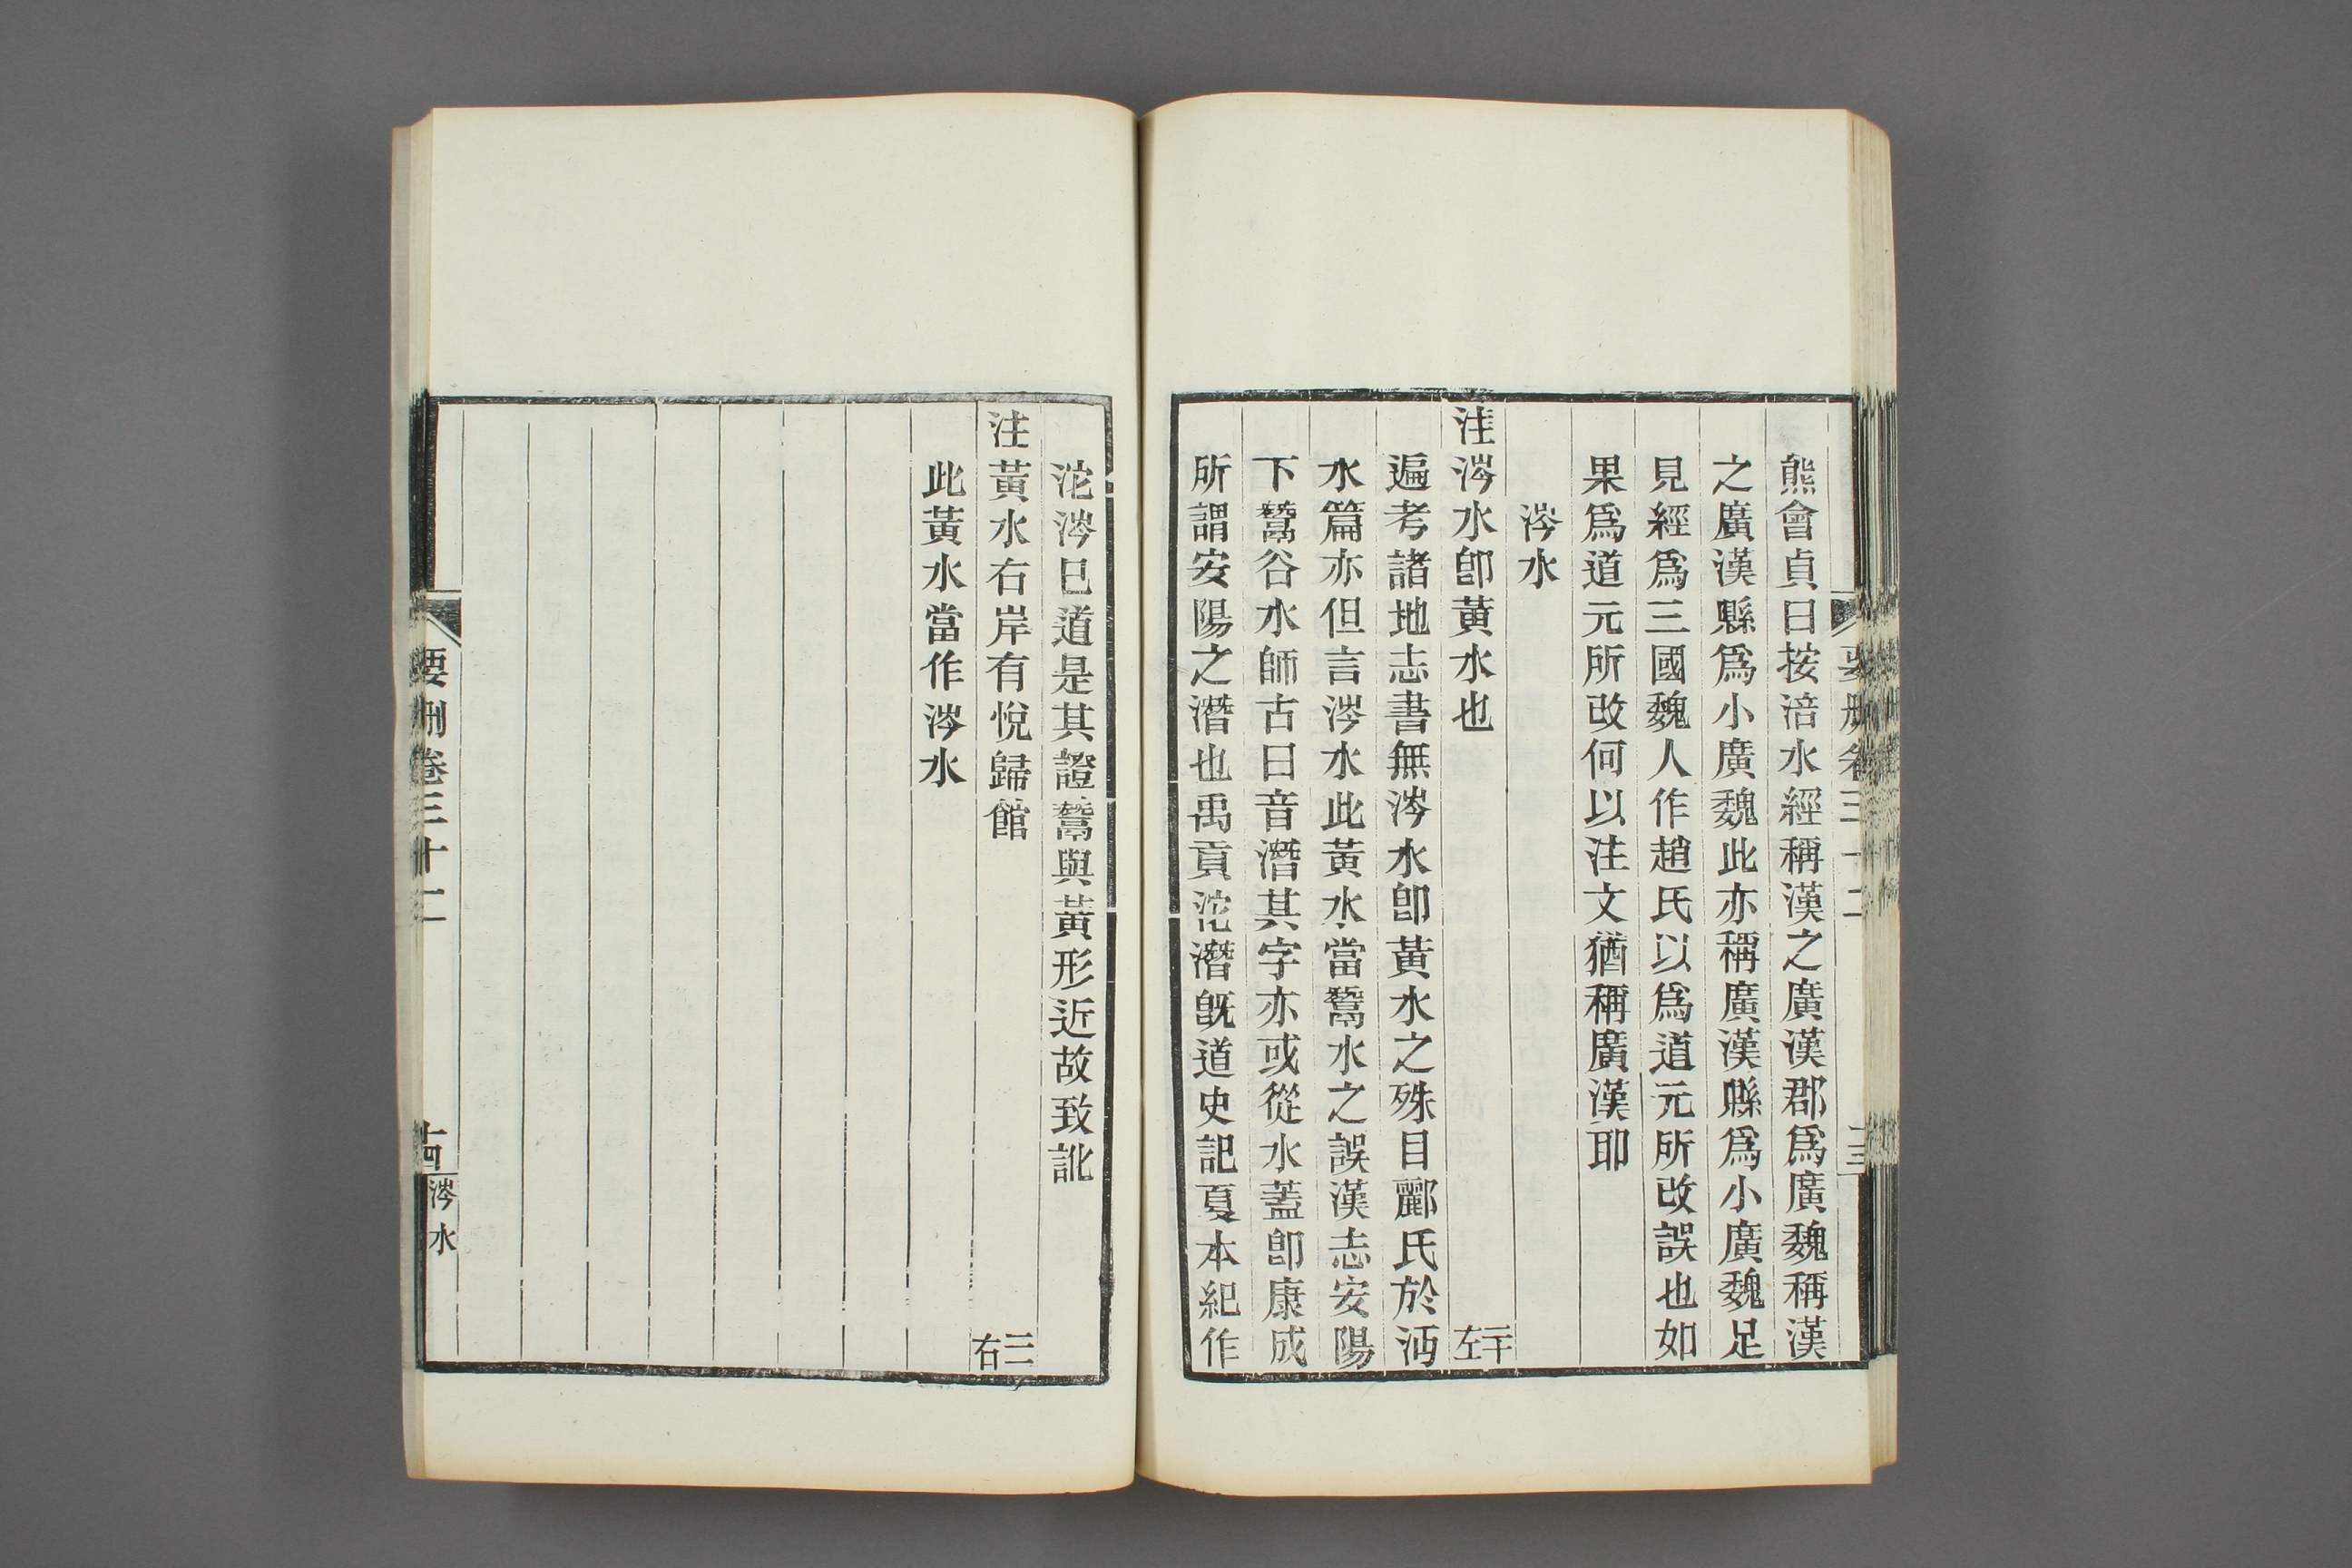 熊會貞曰按涪水經稱漢之廣漢郡爲廣魏稱漢
之廣漢縣爲小廣魏此亦稱廣漢縣爲小廣魏足
見經爲三國魏人作趙氏以爲道元所改誤也如
果爲道元所改何以注文猶稱廣漢耶
涔水
注涔水卽黃水也 二十左
遍考諸地志書無涔水卽黃水之殊目酈氏於沔
水篇亦但言涔水此黃水當鬵水之誤漢志安陽
下鬵谷水師古曰音潛其字亦或從水蓋卽康成
所謂安陽之潛也禹貢沱潛旣道史記夏本紀作
沱涔已道是其證鬵與黃形近故致訛
注黃水右岸有悅歸館 二一右
此黃水當作涔水
要刪卷三十二
十四
涔水